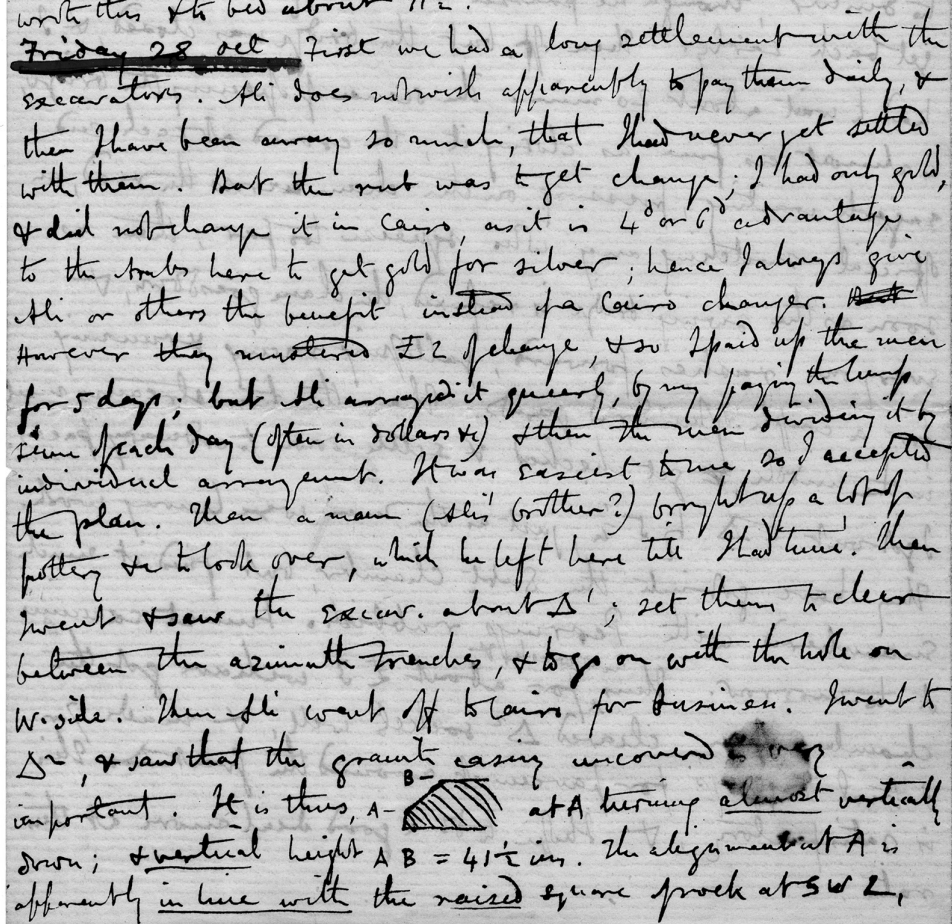 wrote this & to bed about 11 1/2.
Friday 28 Oct First we had a long settlement with the
excavators. Ali does not wish apparently to pay them daily, &
then I have been away so much, that I had never yet settled
with them. But the rub was to get change; I had only gold,
& did not change it in Cairo, as it is 4d or 6d advantage
to the Arabs here to get gold for silver; hence I always give
Ali or others the benefit instead of a Cairo changer. But
However they mustered £2 of change, & so I paid up the men
for 5 days; but Ali arranged it queerly, by my paying the lump
sum of each day (often in dollars &c) & then the men dividing it by
individual arrangement. It was easiest to me, so I accepted
the plan. Then a man (Ali's brother?) brought up a lot of
pottery &c to look over, which he left here till I had time. Then
I went & saw the excav. about Δ1; set them to clear
between the azimuth trenches, & to go on with the hole on
W. side. Then Ali went off to Cairo for business. I went to
Δ2, & saw that the granite casing uncovered is very
important. It is thus, A- B- at A turning almost vertically
down; & vertical height AB = 41 1/2 ins. The alignment at A is
apparently in line with the raised square of rock at SW 2,